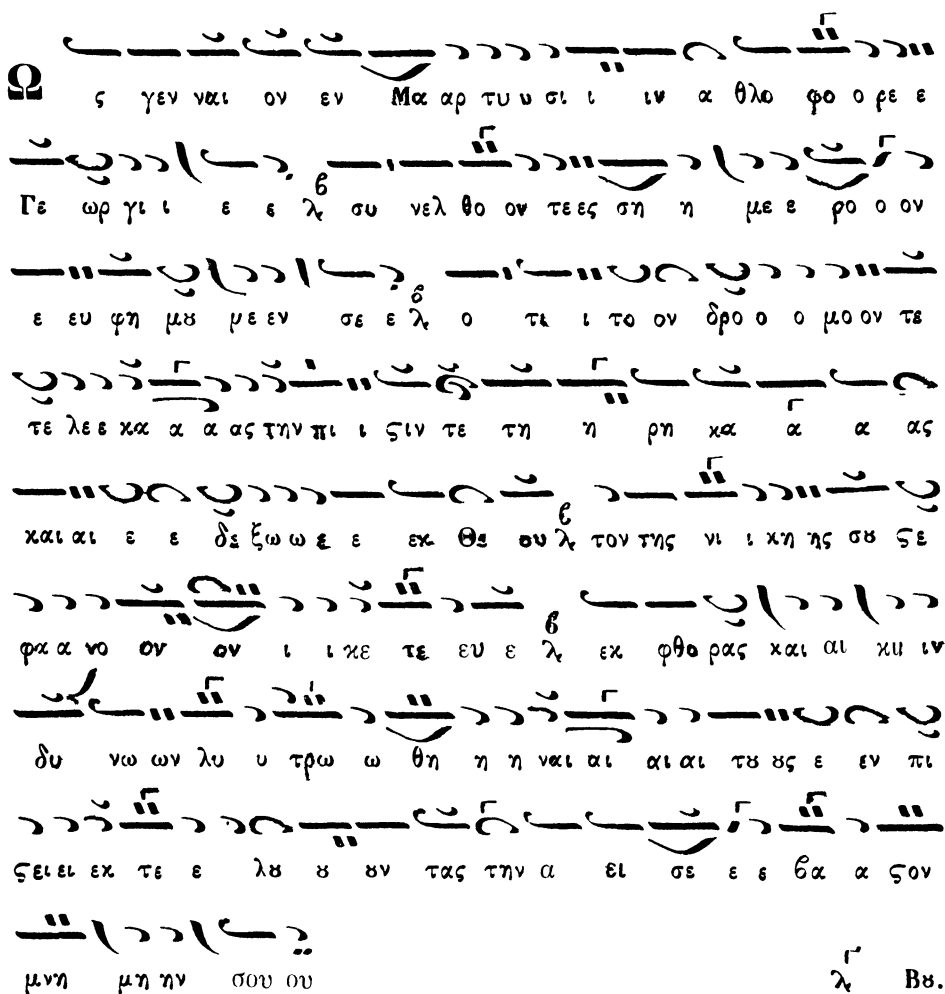 Ω ς γεν ναι ον εν Μα αρ τυ υ σι ι ιν α θλο φο ο ρε ε
Γε ωρ γι ι ε ε λ συ νελ θο ον τε ες ση η με ε ρο ο ον
ε ευ φη μȣ με εν σε ε λ ο τι ι το ον δρο ο ο μο ον τε
τε λε ε κα α α ας την πι ι ϛιν τε τη η ρη κα α α ας
και αι ε ε δε ξω ω ε ε εκ Θε ου λ τον της νι ι κη ης σȣ ϛε
φα α νο ον ον ι ι κε τε ευ ε λ εκ φθο ρας και αι κι ιν
δυ νω ων λυ υ τρω ω θη η η ναι αι αι αι τȣ ȣς ε εν πι
ϛει ει εκ τε ε λȣ ȣ ȣν τας την α ει σε ε ε βα α ϛον
μνη μη ην σου ου λ Βȣ.